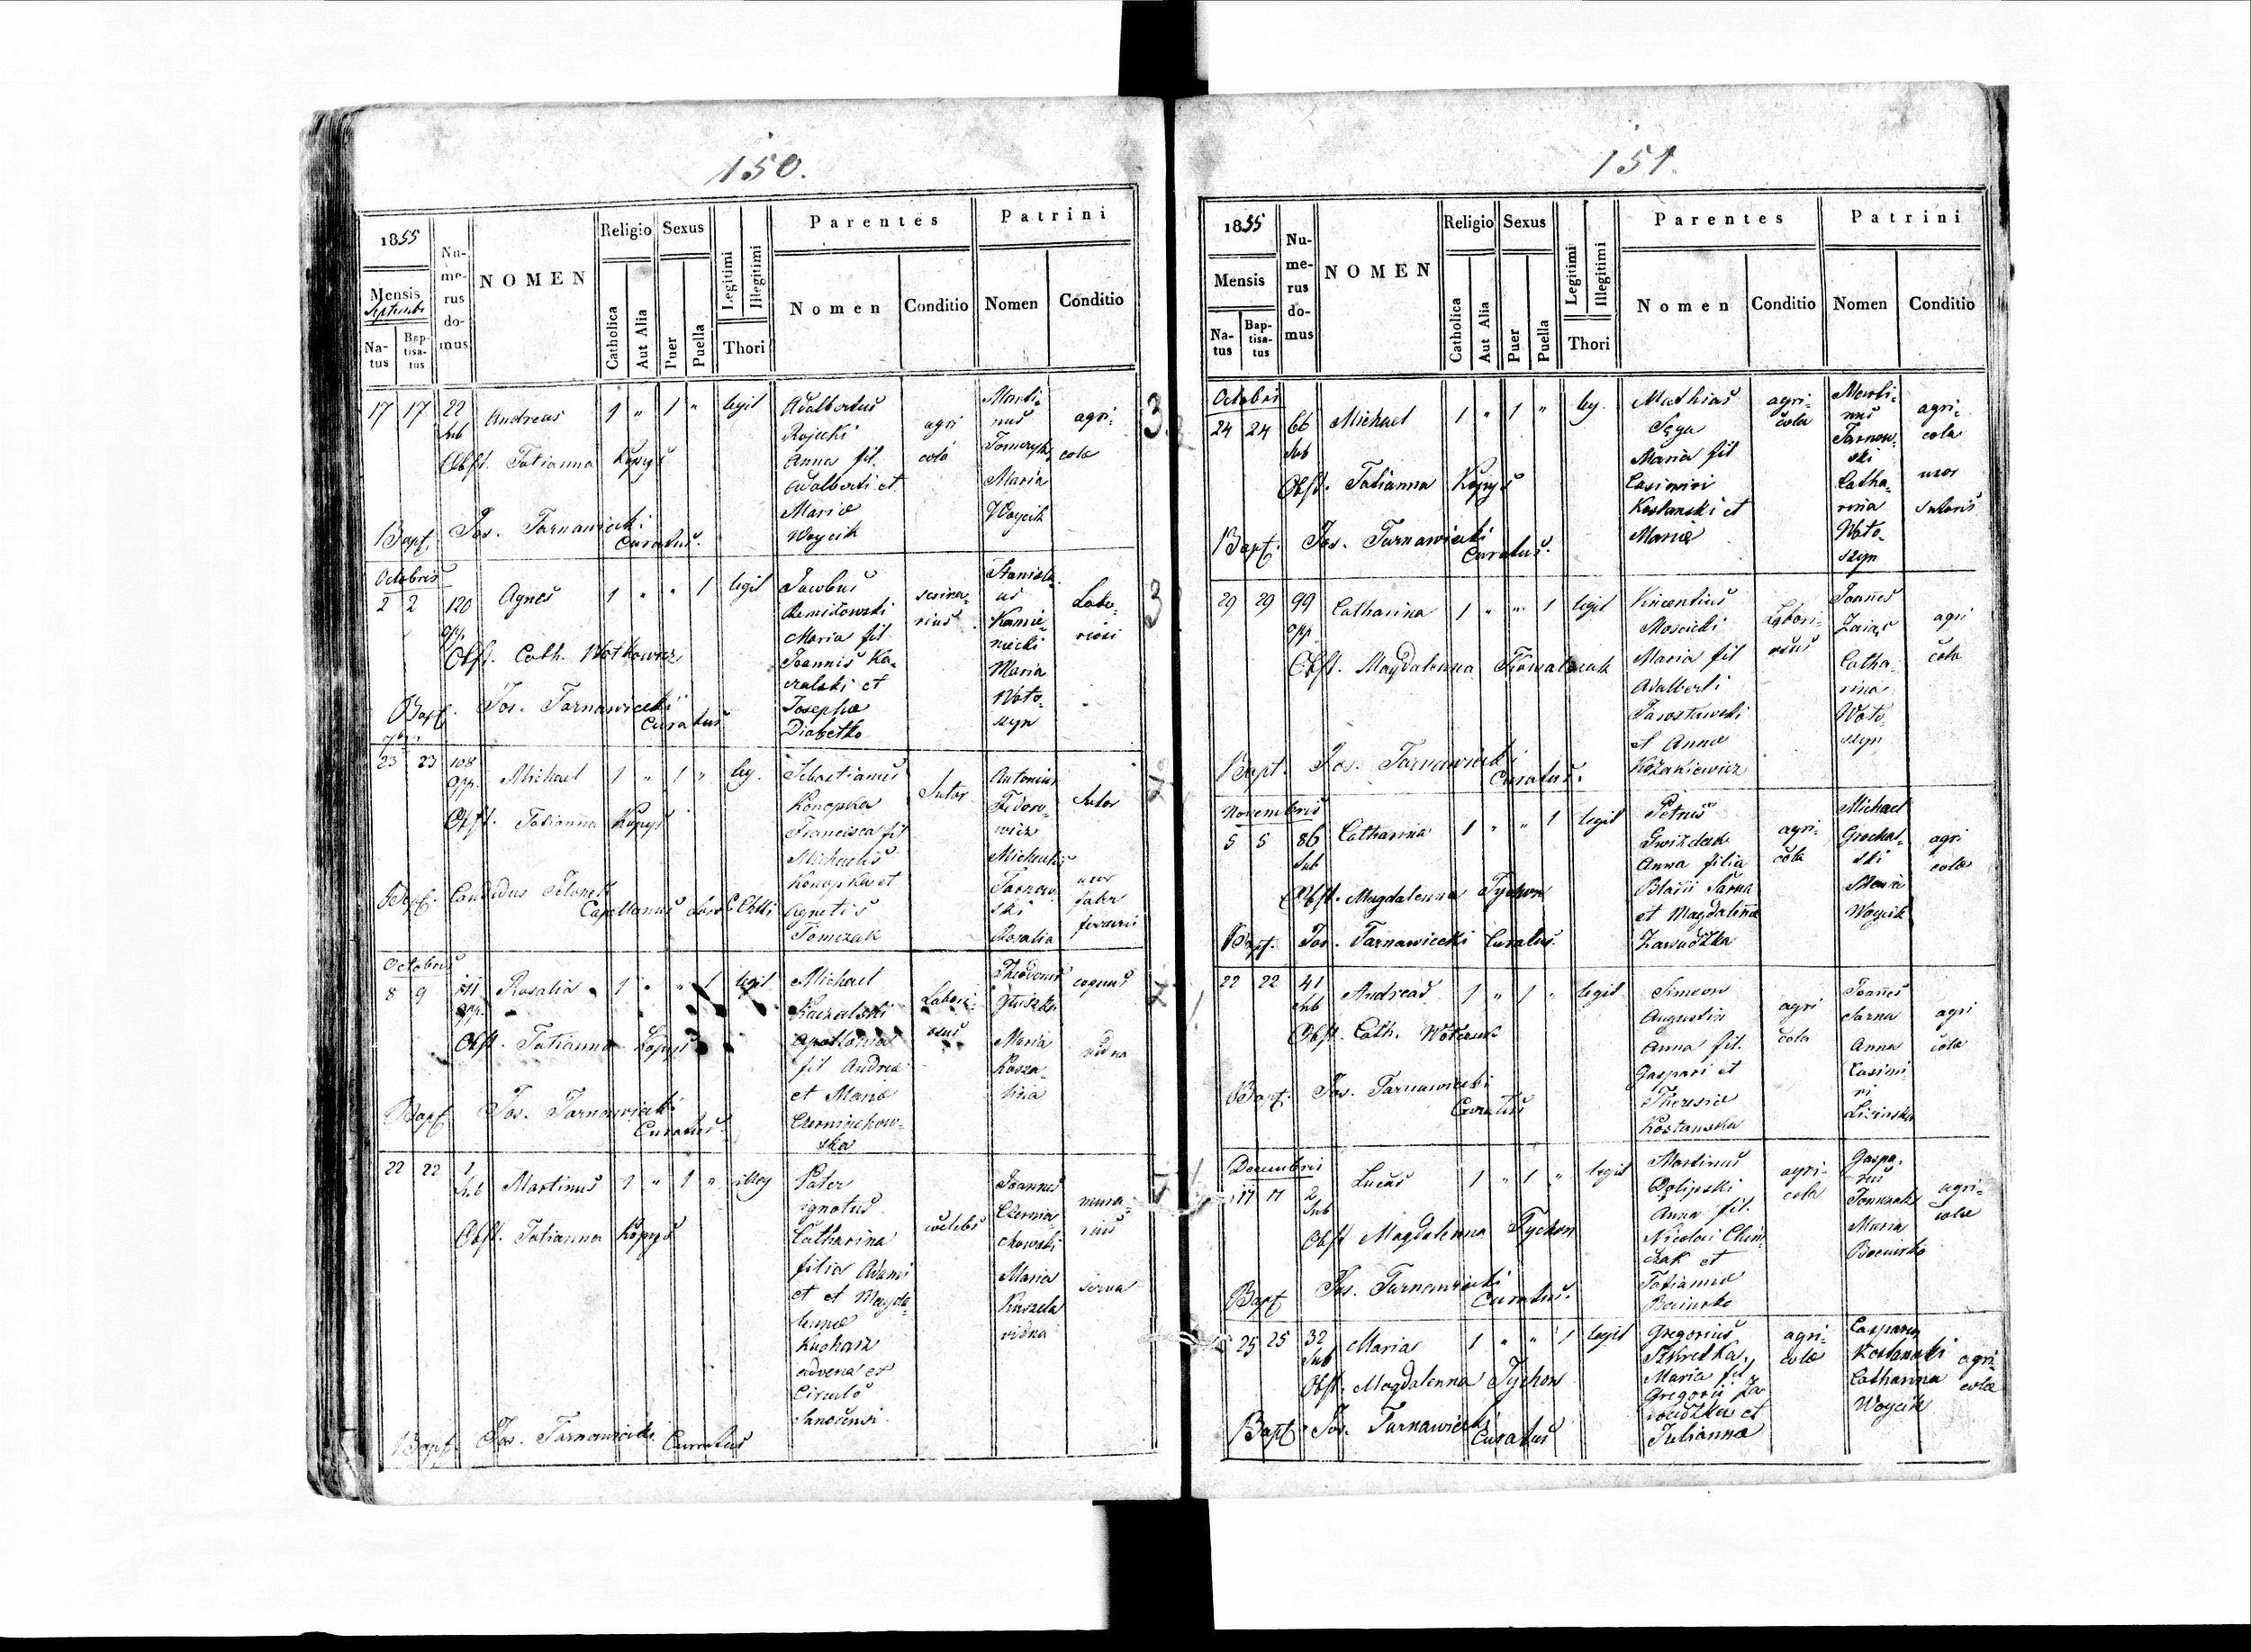 150.
1855
Mensis
Septembr
Na-
tus
Bap-
tisa-
tus
Nu-
me-
rus
do-
mus
NOMEN
Religio
Catholica
Aut Alia
Sexus
Puer
Puella
Legitimi
Illegitimi
Thori
Parentes
Nomen
Conditio
Patrini
Nomen
Conditio
17 17 22 Andreas 1 „ 1 „ legit
Sub
Obst. Tatianna Kopyś
Bapt. Jos. Tarnawiecki
Curatus.
Adalbertus
Rojecki
Anna fil.
Adalberti et
Mariæ
Woycik
agri
cola
Marti-
nus
Tomczyk
Maria
Woycik
agri-
cola
3
Octobris
2 2 120 Agnes 1 „ „ 1 legit
opp.
Obst. Cath. Wołkowicz
Bapt. Jos. Tarnawiecki
Curatus
Jacobus
Maria fil
Joannis Ka-
czalski et
Josephæ
Diabełko
Stanisla-
us
Kamie-
niecki
Maria
Woło-
szyn
Labo-
riosi
3
7bris
23 23 108 Michael 1 „ 1 „ leg.
opp.
Obst. Tatianna Kopyś
Bapt. Candidus
Capellanus
Sebastianus
Konopka
Francisca fil
Michaelis
Konopka et
Agnetis
Tomczak
Sutor
Antonius
Fedoro-
wicz
Michaelis
Tarnow-
ski
Rosalia
Sutor
uxor
fabri
ferrarii
Octobris
8 9 111 Rosalia 1 „ „ 1 legit
opp.
Obst. Tatianna Kopyś
Bapt. Jos. Tarnawiecki
Curatus
Michael
Kaczalski
Apollonia
fil Andreæ
et Mariæ
Czerniechow-
ska
Labori-
osus
Theodorus
Maria
coquus
vidua
22 22 1 Martinus 1 „ 1 „ illeg
Sub
Obst. Tatianna Kopyś
Bapt. Jos. Tarnawiecki Curatus
Pater
ignotus
Catharina
filia Adami
et et Magda-
lenæ
Kucharz
advena et
Circulo
Sanocensi
cœlebs
Joannes
Czernia-
chowski
Maria
Kaszela
vidua
mura-
rius
serva
151.
1855
Mensis
Na-
tus
Bap-
tisa-
tus
Nu-
me-
rus
do-
mus
NOMEN
Religio
Catholica
Aut Alia
Sexus
Puer
Puella
Legitimi
Illegitimi
Thori
Parentes
Nomen
Conditio
Patrini
Nomen
Conditio
Octobris
24 24 66 Michael 1 „ 1 „ leg.
Sub
Obst. Tatianna Kopyś
Bapt. Jos. Tarnawiecki
Curatus.
Mathias
Sęga
Maria fil
Casimiri
Kostanski et
Mariæ
agri-
cola
Marti-
nus
Tarnow-
ski
Catha-
rina
Woło-
szyn
agri-
cola
uxor
sutoris
29 29 99 Catharina 1 „ „ 1 legit
opp
Obst. Magdalenna Kowalczuk
Bapt. Jos. Tarnawiecki
Curatus.
Vincentius
Moscicki
Maria fil
Adalberti
Jarosławski
et Annæ
Kożakiewicz
Labori-
osus
Joannes
Zając
Catha-
rina
Woło-
szyn
agri
cola
Novembris
5 5 86 Catharina 1 „ „ 1 legit
Sub
Obst. Magdalenna Tychon
Bapt. Jos. Tarnawiecki Curatus.
Petrus
Gwizdak
Anna filia
Blasii Sarna
et Magdalenæ
Zawadzka
agri-
cola
Michael
Grochal-
ski
Maria
Woycik
agri
colæ
22 22 41 Andreas 1 „ 1 „ legit
Sub
Obst. Cath.
Bapt. Jos. Tarnawiecki
Curatus
Simeon
Augustin
Anna fil.
Gaspari et
Theresiæ
Kostanska
agri
cola
Joannes
Sarna
Anna
Casimi-
ri
agri
cola
Decembris
17 17 2 Lucas 1 „ 1 „ legit
Sub
Obst Magdalenna Tychon
Bapt Jos. Tarnawiecki
Curatus.
Martinus
Dolipski
Anna fil.
Nicolai Klim-
czak et
Tatiannæ
agri-
cola
Gaspa-
rus
Tomczak
Maria
agri-
colæ
25 25 32 Maria 1 „ „ 1 legit
Sub
Obst. Magdalenna Tychon
Bapt. Jos. Tarnawiecki
Curatus
Gregorius
Szkretka,
Maria fil
Gregorii Za-
wadzka et
Juliannæ
agri-
colæ
Casparus
Kostanski
Catharina
Woycik
agri-
colæ